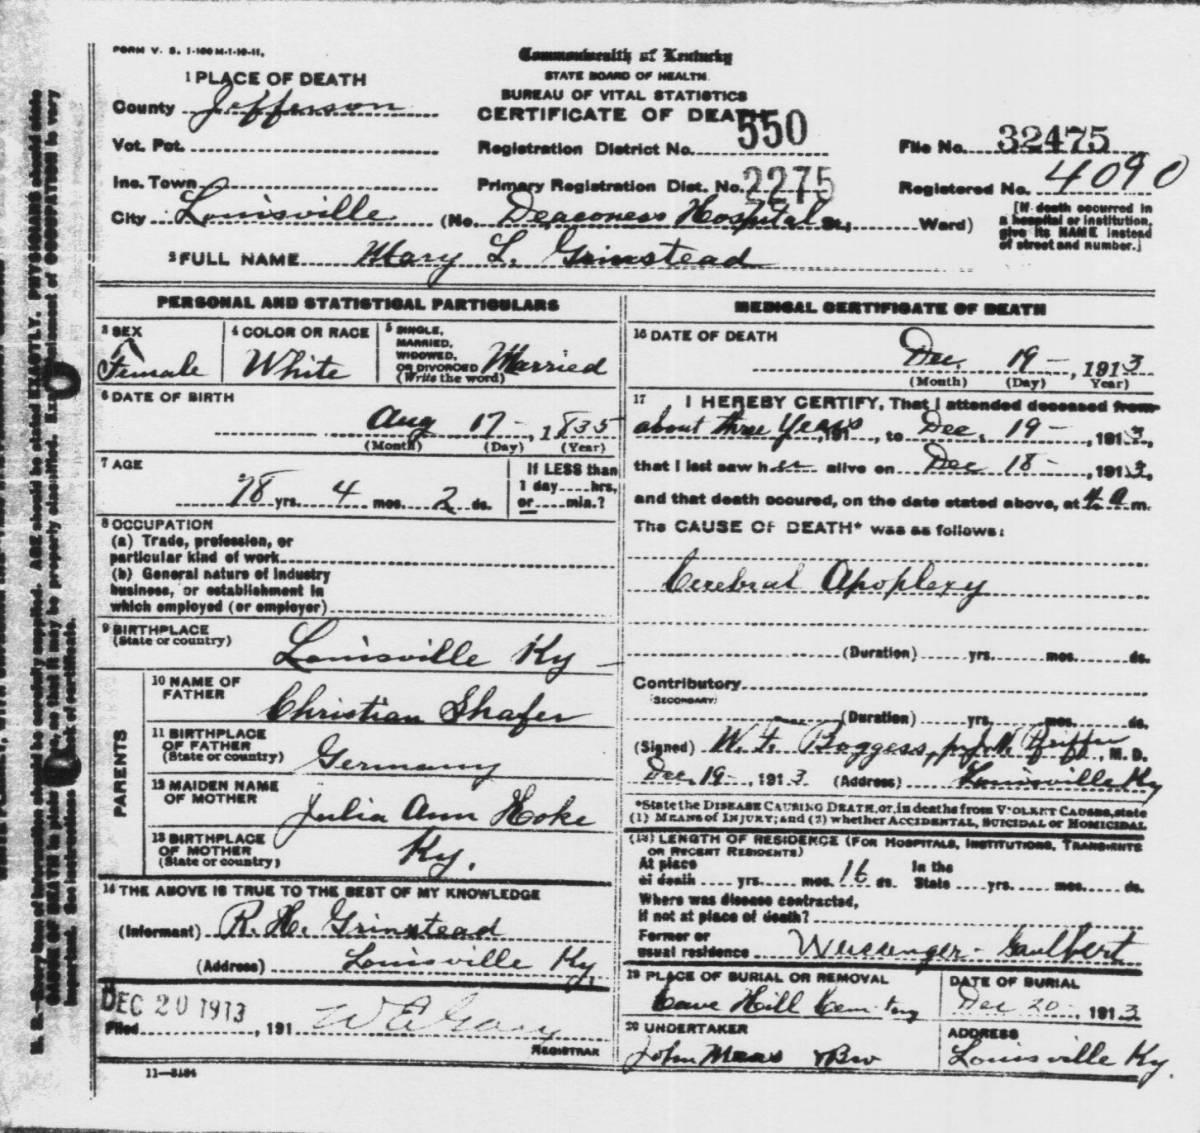 FORM V. S. 1-100M-1-10-11.
Commonwealth of Kentucky
STATE BOARD OF HEALTH
BUREAU OF VITAL STATISTICS
CERTIFICATE OF DEATH
1 PLACE OF DEATH
County Jefferson
Vot. Pct.
Registration District No. 550
File No. 32475
Inc. Town
Primary Registration Dist. No. 2275
Registered No. 4090
City Louisville (No. Deaconess Hospital St., Ward)
[If death occurred in a hospital or institution, give its NAME instead of street and number.]
2 FULL NAME Mary L. Grinstead
PERSONAL AND STATISTICAL PARTICULARS
3 SEX Female
4 COLOR OR RACE White
5 SINGLE, MARRIED, WIDOWED, OR DIVORCED (Write the word) Married
6 DATE OF BIRTH
Aug 17 - , 1835
(Month) (Day) (Year)
7 AGE
78 yrs. 4 mos. 2 ds.
If LESS than 1 day hrs. or min.?
8 OCCUPATION
(a) Trade, profession, or
particular kind of work
(b) General nature of industry
business, or establishment in
which employed (or employer)
9 BIRTHPLACE
(State or country) Louisville Ky
PARENTS
10 NAME OF FATHER Christian Shafer
11 BIRTHPLACE OF FATHER (State or country) Germany
12 MAIDEN NAME OF MOTHER Julia Ann Hoke
13 BIRTHPLACE OF MOTHER (State or country) Ky.
14 THE ABOVE IS TRUE TO THE BEST OF MY KNOWLEDGE
(Informant) R. H. Grinstead
(Address) Louisville Ky.
DEC 20 1913
Filed , 191
REGISTRAR
11-3184
MEDICAL CERTIFICATE OF DEATH
16 DATE OF DEATH
Dec. 19 - , 1913
(Month) (Day) (Year)
17 I HEREBY CERTIFY, That I attended deceased from
about three years, 191 , to Dec. 19 - , 1913,
that I last saw her alive on Dec 18 - , 1913,
and that death occured, on the date stated above, at 4 a m.
The CAUSE OF DEATH* was as follows:
Cerebral Apoplexy
(Duration) yrs. mos. ds.
Contributory
(SECONDARY)
(Duration) yrs. mos. ds.
(Signed) W. F. Boggess, M. D.
Dec. 19 - 1913 (Address) Louisville Ky
*State the DISEASE CAUSING DEATH, or, in deaths from VIOLENT CAUSES, state
(1) MEANS OF INJURY; and (2) whether ACCIDENTAL, SUICIDAL or HOMICIDAL
(18) LENGTH OF RESIDENCE (FOR HOSPITALS, INSTITUTIONS, TRANSIENTS
OR RECENT RESIDENTS)
At place of death yrs. mos. 16 ds. In the State yrs. mos. ds.
Where was disease contracted,
if not at place of death?
Former or
usual residence Weissenger - Gaulbert
19 PLACE OF BURIAL OR REMOVAL
Cave Hill Cemetery
DATE OF BURIAL
Dec 20 - , 1913
20 UNDERTAKER
John Maas & Bro
ADDRESS
Louisville Ky.